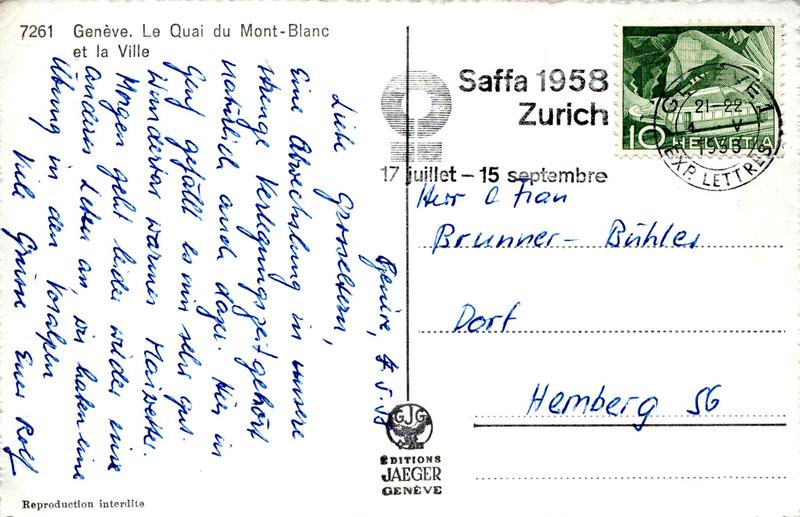 7261 Genève. Le Quai du Mont-Blanc
et la Ville
Saffa 1958
Zurich
17 juillet – 15 septembre
GENÈVE 1
21-22
V
1958
EXP. LETTRES
10 HELVETIA
Herr & Frau
Brunner - Bühler
Dorf
Hemberg SG
Genève, 4.5.58
Liebe Grosseltern,
Eine Abwechslung in unsere
strenge Verlegungszeit gehört
natürlich auch dazu. Hier in
Genf gefällt es mir sehr gut.
Wunderbar warmes Maiwetter.
Morgen geht leider wieder eine
anderes Leben an, wir haben eine
Übung in den Voralpen
Viele Grüsse Euer Rolf
GJG
ÉDITIONS
JAEGER
GENÈVE
Reproduction interdite